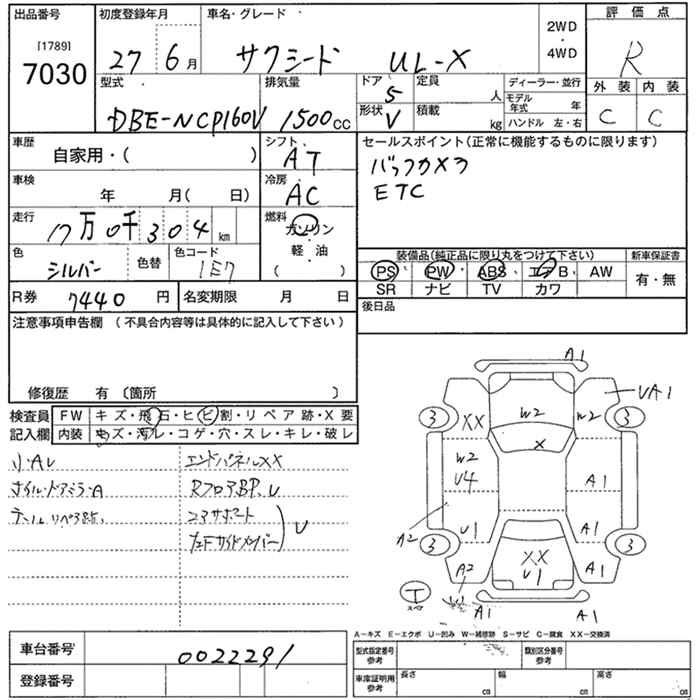 出品番号 初度登録年月 車名・グレード 評価点
[1789]
7030
27 6月 サクシード UL-X
2WD
・
4WD
R
型式 排気量 ドア 定員 ディーラー・並行 外装 内装
DBE-NCP160V 1500cc 5 人 モデル年式 年 C C
形状 V 積載 kg ハンドル 左・右
車歴 シフト セールスポイント(正常に機能するものに限ります)
自家用・( ) AT バックカメラ
車検 冷房 ETC
年 月( 日) AC
走行 燃料
17万0千304km ガソリン
軽・油
( )
色 色替 色コード
シルバー 1E7
装備品(純正品に限り丸をつけて下さい) 新車保証書
PS PW ABS エアB AW 有・無
SR ナビ TV カワ
R券 7440円 名変期限 月 日 後日品
注意事項申告欄 (不具合内容等は具体的に記入して下さい)
修復歴 有〔箇所 〕
検査員 FW キズ・飛石・ヒビ割・リペア跡・X要
記入欄 内装 キズ・汚レ・コゲ・穴・スレ・キレ・破レ
小・AU エンドパネルXX
ホイル・ドアミラ・A RフロアBP、U
テール リペア跡、 コアサポート
左Fサイドメンバー U
A1
UA1
3 XX W2 W2 3
X
W2
U4 A1
A2 U1 A1
3 3
A2 XX A1
U1
T
スペア
A1 A1
A-キズ E-エクボ U-凹み W-補修跡 S-サビ C-腐食 XX-交換済
車台番号 0022291
登録番号
型式指定番号 参考 類別区分番号 参考
車庫証明用 参考 長さ cm 幅 cm 高さ cm